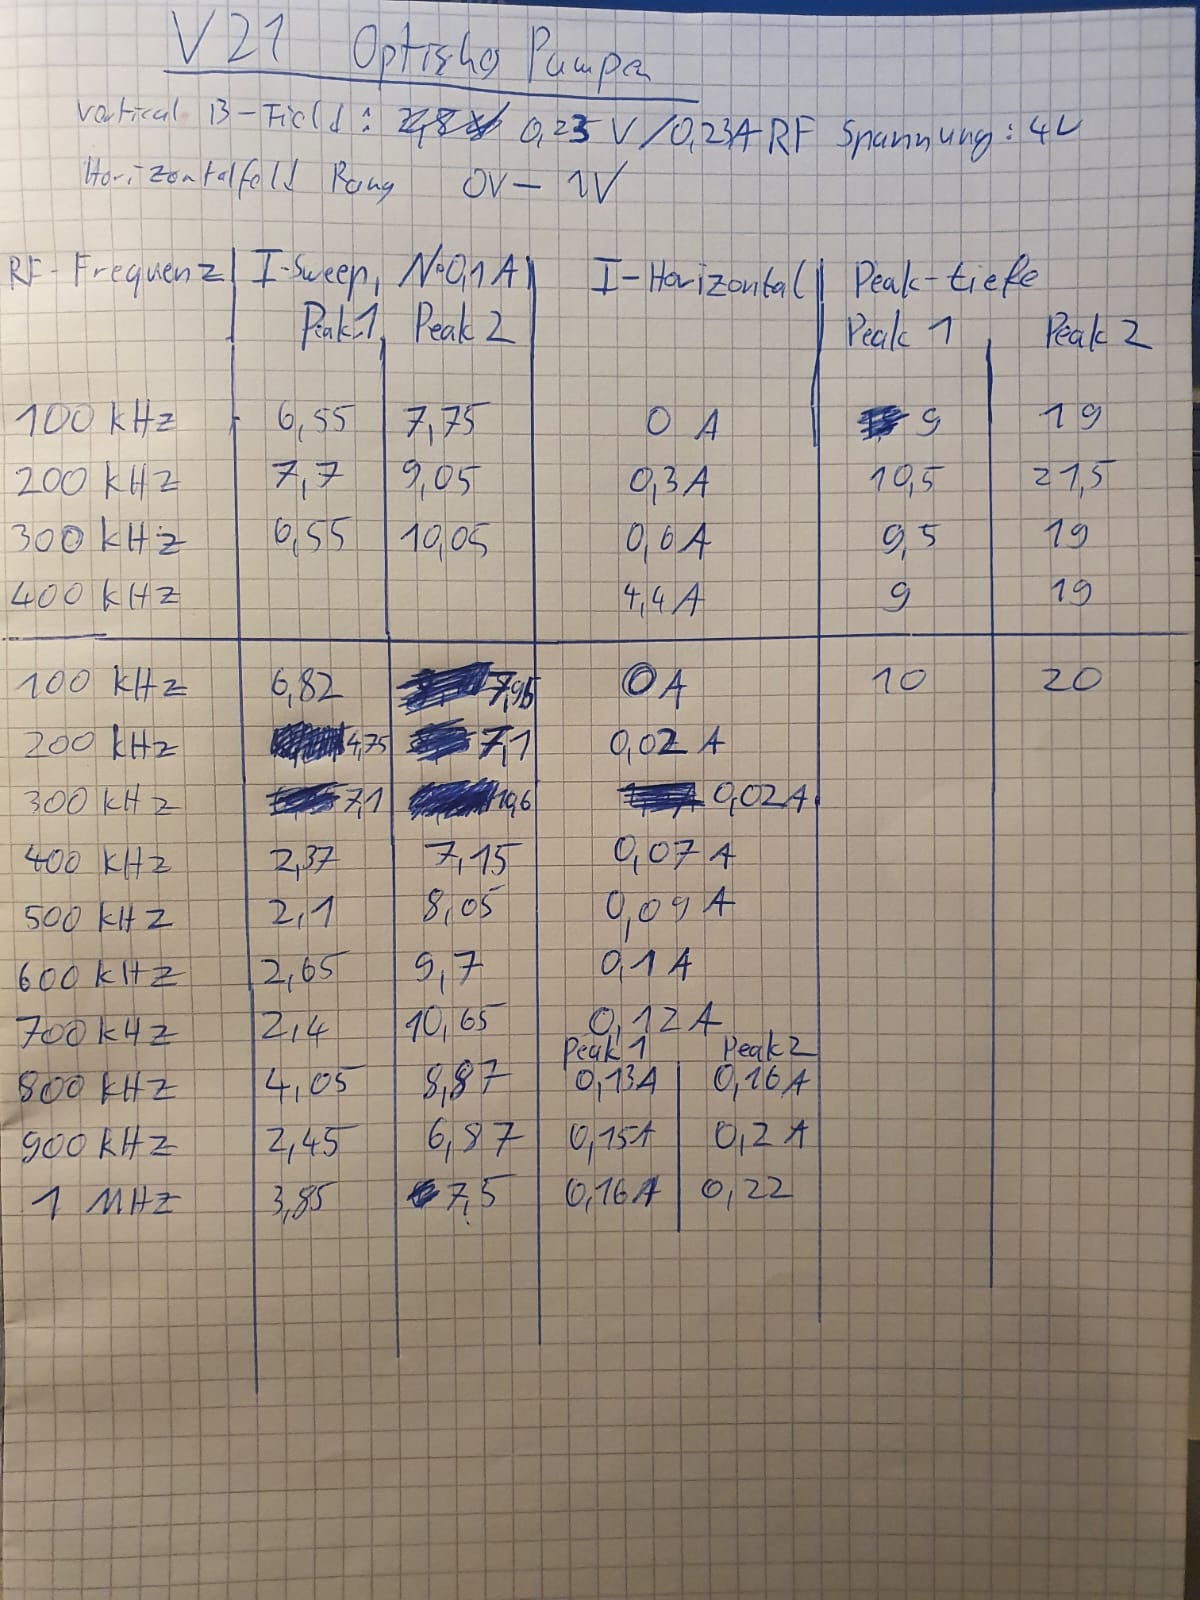 V21 Optishes Pumpen
Vertical B-Field: 0,23 V/0,23A RF Spannung: 4V
Horizontalfeld Rang 0V – 1V
RF-Frequenz I-Sweep, N·0,1A I-Horizontal Peak-tiefe
Peak 1 Peak 2 Peak 1 Peak 2
100 kHz 6,55 7,75 0 A 9 19
200 kHz 7,7 9,05 0,3A 10,5 21,5
300 kHz 6,55 10,05 0,6A 9,5 19
400 kHz 4,4A 9 19
100 kHz 6,82 7,95 0A 10 20
200 kHz 4,75 7,1 0,02 A
300 kHz 7,1 10,6 0,02A
400 kHz 2,37 7,15 0,07 A
500 kHz 2,1 8,05 0,09 A
600 kHz 2,65 9,7 0,1 A
700 kHz 2,4 10,65 0,12 A
Peak 1 Peak 2
800 kHz 4,05 8,87 0,13A 0,16A
900 kHz 2,45 6,87 0,15A 0,2 A
1 MHz 3,85 7,5 0,16A 0,22